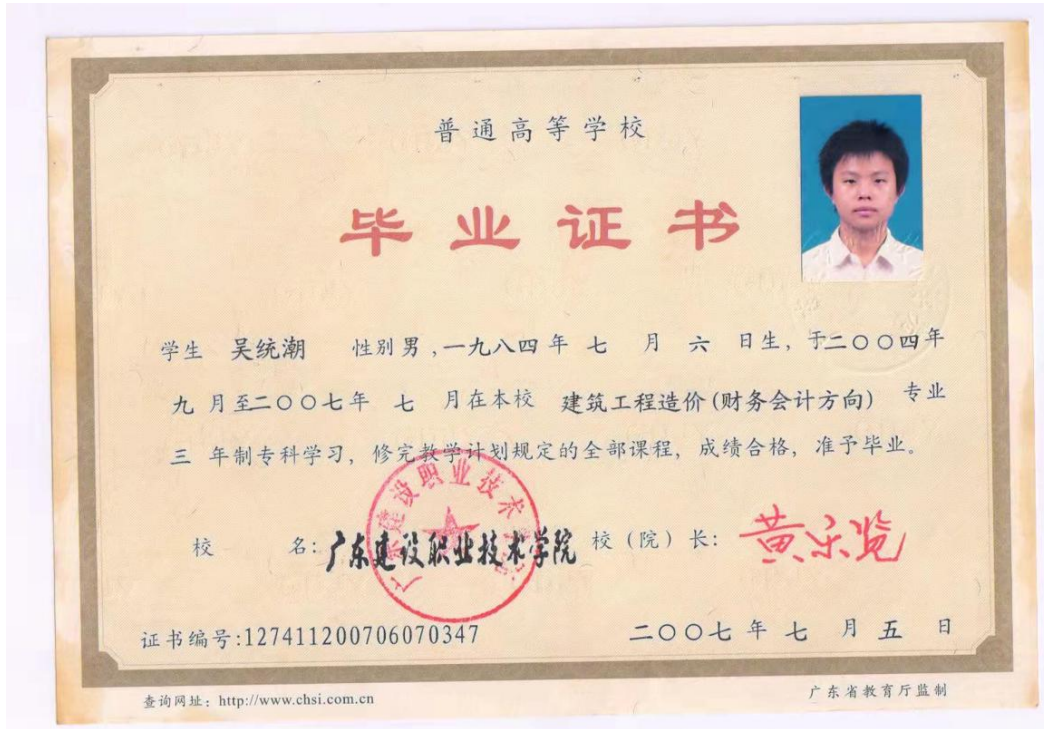 普通高等学校
毕业证书
学生 吴统潮 性别 男 ,一九八四 年 七 月 六 日生，于二〇〇四年
九 月至二〇〇七年 七 月在本校 建筑工程造价(财务会计方向) 专业
三 年制专科学习，修完教学计划规定的全部课程，成绩合格，准予毕业。
广东建设职业技术学院
校 名：广东建设职业技术学院 校（院）长：
证书编号:127411200706070347 二〇〇七 年 七 月 五 日
查询网址：http://www.chsi.com.cn 广东省教育厅监制